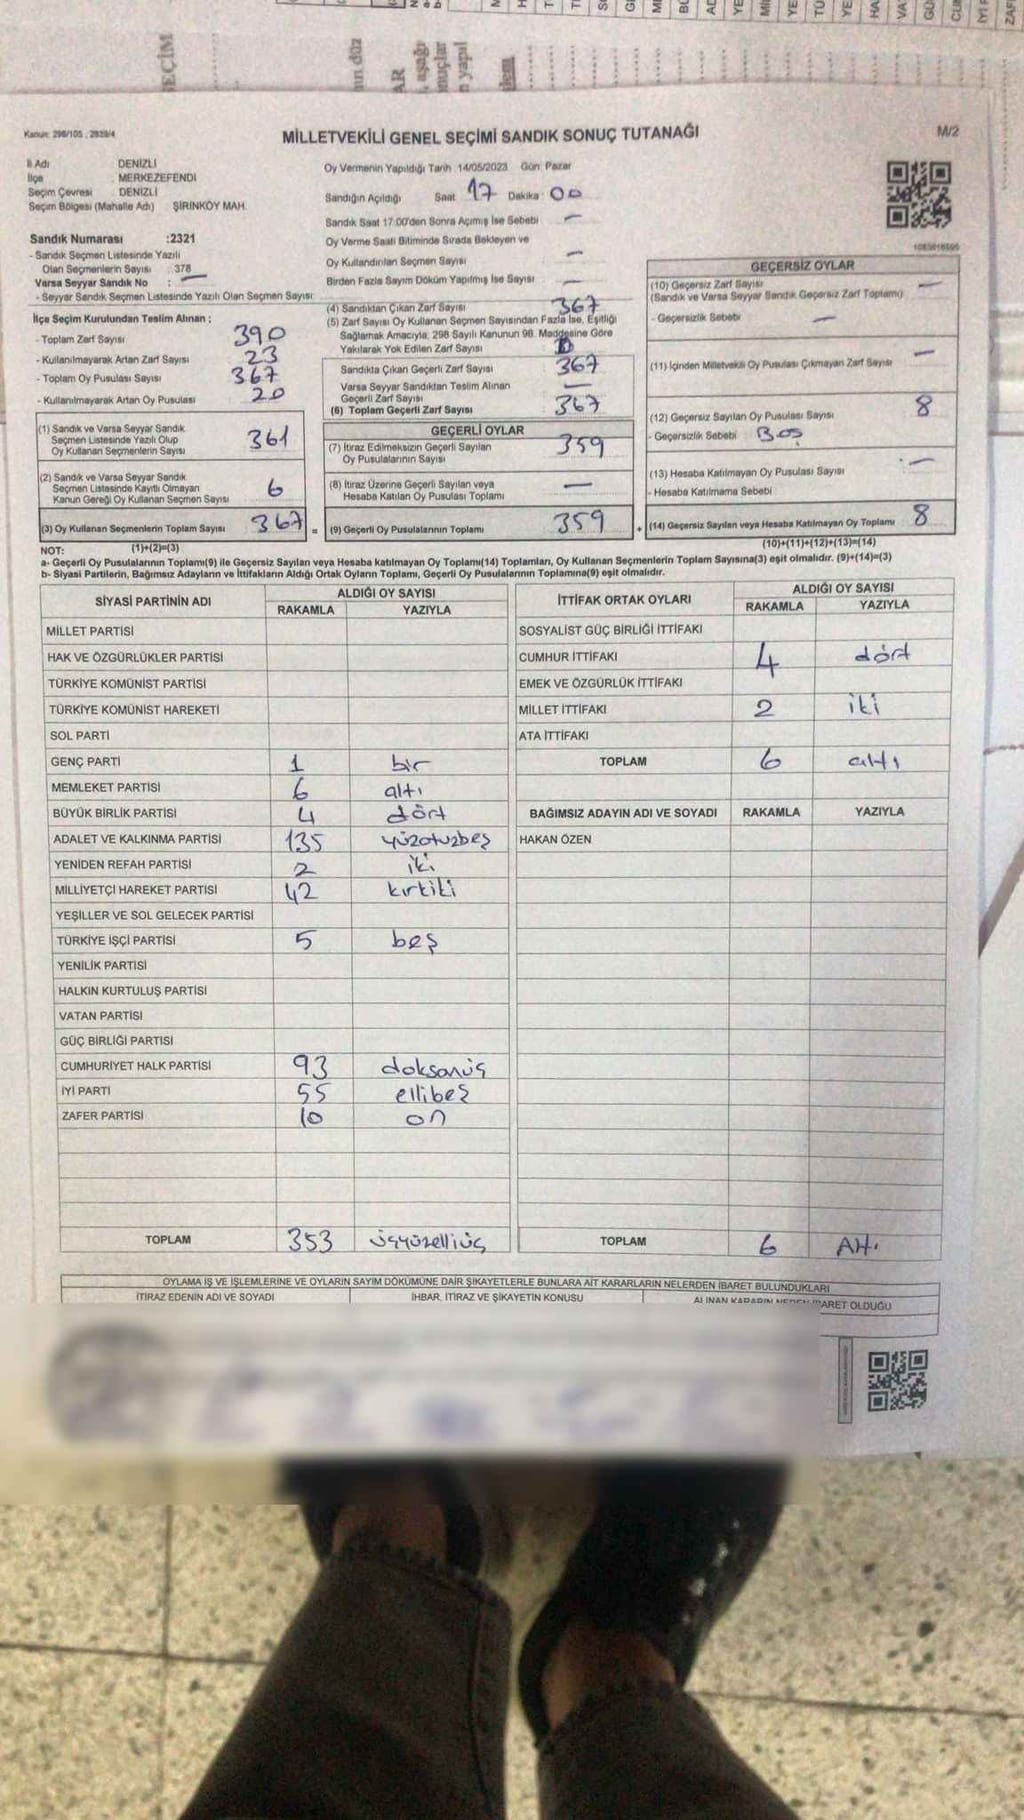 EÇİM
Kanun: 298/105 ; 2839/4
MİLLETVEKİLİ GENEL SEÇİMİ SANDIK SONUÇ TUTANAĞI
M/2
İl Adı DENİZLİ
İlçe : MERKEZEFENDİ
Seçim Çevresi : DENİZLİ
Seçim Bölgesi (Mahalle Adı) ŞİRİNKÖY MAH.
Sandık Numarası :2321
- Sandık Seçmen Listesinde Yazılı
Olan Seçmenlerin Sayısı : 378
Varsa Seyyar Sandık No : —
- Seyyar Sandık Seçmen Listesinde Yazılı Olan Seçmen Sayısı
İlçe Seçim Kurulundan Teslim Alınan ;
- Toplam Zarf Sayısı 390
- Kullanılmayarak Artan Zarf Sayısı 23
- Toplam Oy Pusulası Sayısı 367
- Kullanılmayarak Artan Oy Pusulası 20
(1) Sandık ve Varsa Seyyar Sandık
Seçmen Listesinde Yazılı Olup
Oy Kullanan Seçmenlerin Sayısı 361
(2) Sandık ve Varsa Seyyar Sandık
Seçmen Listesinde Kayıtlı Olmayan
Kanun Gereği Oy Kullanan Seçmen Sayısı 6
(3) Oy Kullanan Seçmenlerin Toplam Sayısı 367 =
Oy Vermenin Yapıldığı Tarih 14/05/2023 Gün: Pazar
Sandığın Açıldığı Saat 17 Dakika 00
Sandık Saat 17:00'den Sonra Açılmış İse Sebebi —
Oy Verme Saati Bitiminde Sırada Bekleyen ve
Oy Kullandırılan Seçmen Sayısı —
Birden Fazla Sayım Döküm Yapılmış İse Sayısı —
(4) Sandıktan Çıkan Zarf Sayısı 367
(5) Zarf Sayısı Oy Kullanan Seçmen Sayısından Fazla İse, Eşitliği
Sağlamak Amacıyla; 298 Sayılı Kanunun 98. Maddesine Göre
Yakılarak Yok Edilen Zarf Sayısı
Sandıkta Çıkan Geçerli Zarf Sayısı 367
Varsa Seyyar Sandıktan Teslim Alınan
Geçerli Zarf Sayısı —
(6) Toplam Geçerli Zarf Sayısı 367
GEÇERLİ OYLAR
(7) İtiraz Edilmeksizin Geçerli Sayılan
Oy Pusulalarının Sayısı 359
(8) İtiraz Üzerine Geçerli Sayılan veya
Hesaba Katılan Oy Pusulası Toplamı —
(9) Geçerli Oy Pusulalarının Toplamı 359 +
GEÇERSİZ OYLAR
(10) Geçersiz Zarf Sayısı
(Sandık ve Varsa Seyyar Sandık Geçersiz Zarf Toplamı) —
- Geçersizlik Sebebi —
(11) İçinden Milletvekili Oy Pusulası Çıkmayan Zarf Sayısı —
(12) Geçersiz Sayılan Oy Pusulası Sayısı 8
- Geçersizlik Sebebi Boş
(13) Hesaba Katılmayan Oy Pusulası Sayısı —
- Hesaba Katılmama Sebebi
(14) Geçersiz Sayılan veya Hesaba Katılmayan Oy Toplamı 8
NOT: (1)+(2)=(3)
(10)+(11)+(12)+(13)=(14)
a- Geçerli Oy Pusulalarının Toplamı(9) ile Geçersiz Sayılan veya Hesaba katılmayan Oy Toplamı(14) Toplamları, Oy Kullanan Seçmenlerin Toplam Sayısına(3) eşit olmalıdır. (9)+(14)=(3)
b- Siyasi Partilerin, Bağımsız Adayların ve İttifakların Aldığı Ortak Oyların Toplamı, Geçerli Oy Pusulalarının Toplamına(9) eşit olmalıdır.
SİYASİ PARTİNİN ADI ALDIĞI OY SAYISI
RAKAMLA YAZIYLA
MİLLET PARTİSİ
HAK VE ÖZGÜRLÜKLER PARTİSİ
TÜRKİYE KOMÜNİST PARTİSİ
TÜRKİYE KOMÜNİST HAREKETİ
SOL PARTİ
GENÇ PARTİ 1 bir
MEMLEKET PARTİSİ 6 altı
BÜYÜK BİRLİK PARTİSİ 4 dört
ADALET VE KALKINMA PARTİSİ 135 yüzotuzbeş
YENİDEN REFAH PARTİSİ 2 iki
MİLLİYETÇİ HAREKET PARTİSİ 42 kırkiki
YEŞİLLER VE SOL GELECEK PARTİSİ
TÜRKİYE İŞÇİ PARTİSİ 5 beş
YENİLİK PARTİSİ
HALKIN KURTULUŞ PARTİSİ
VATAN PARTİSİ
GÜÇ BİRLİĞİ PARTİSİ
CUMHURİYET HALK PARTİSİ 93 doksanüç
İYİ PARTİ 55 ellibeş
ZAFER PARTİSİ 10 on
TOPLAM 353 üçyüzelliüç
İTTİFAK ORTAK OYLARI ALDIĞI OY SAYISI
RAKAMLA YAZIYLA
SOSYALİST GÜÇ BİRLİĞİ İTTİFAKI
CUMHUR İTTİFAKI 4 dört
EMEK VE ÖZGÜRLÜK İTTİFAKI
MİLLET İTTİFAKI 2 iki
ATA İTTİFAKI
TOPLAM 6 altı
BAĞIMSIZ ADAYIN ADI VE SOYADI RAKAMLA YAZIYLA
HAKAN ÖZEN
TOPLAM 6 Altı
OYLAMA İŞ VE İŞLEMLERİNE VE OYLARIN SAYIM DÖKÜMÜNE DAİR ŞİKAYETLERLE BUNLARA AİT KARARLARIN NELERDEN İBARET BULUNDUKLARI
İTİRAZ EDENİN ADI VE SOYADI İHBAR, İTİRAZ VE ŞİKAYETİN KONUSU ALINAN KARARIN NEDEN İBARET OLDUĞU